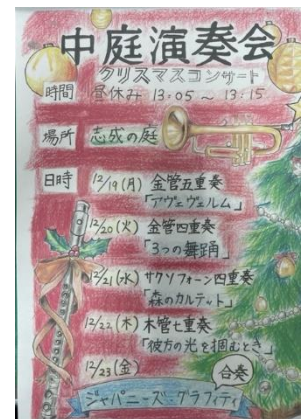 中庭演奏会
クリスマスコンサート
時間 昼休み 13:05～13:15
場所 志成の庭
日時 12/19(月) 金管五重奏
「アヴェヴェルム」
12/20(火) 金管四重奏
「3つの舞踊」
12/21(水) サクソフォーン四重奏
「森のカルテット」
12/22(木) 木管七重奏
「彼方の光を掴むとき」
12/23(金) 合奏
ジャパニーズ・グラフィティ